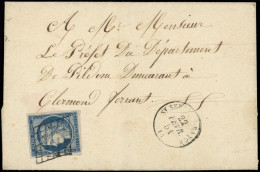 A Mr Monsieur
Le Préfet Du Département
De Puidôm Demeurant à
Clermond ferrant
22
FEVR
51